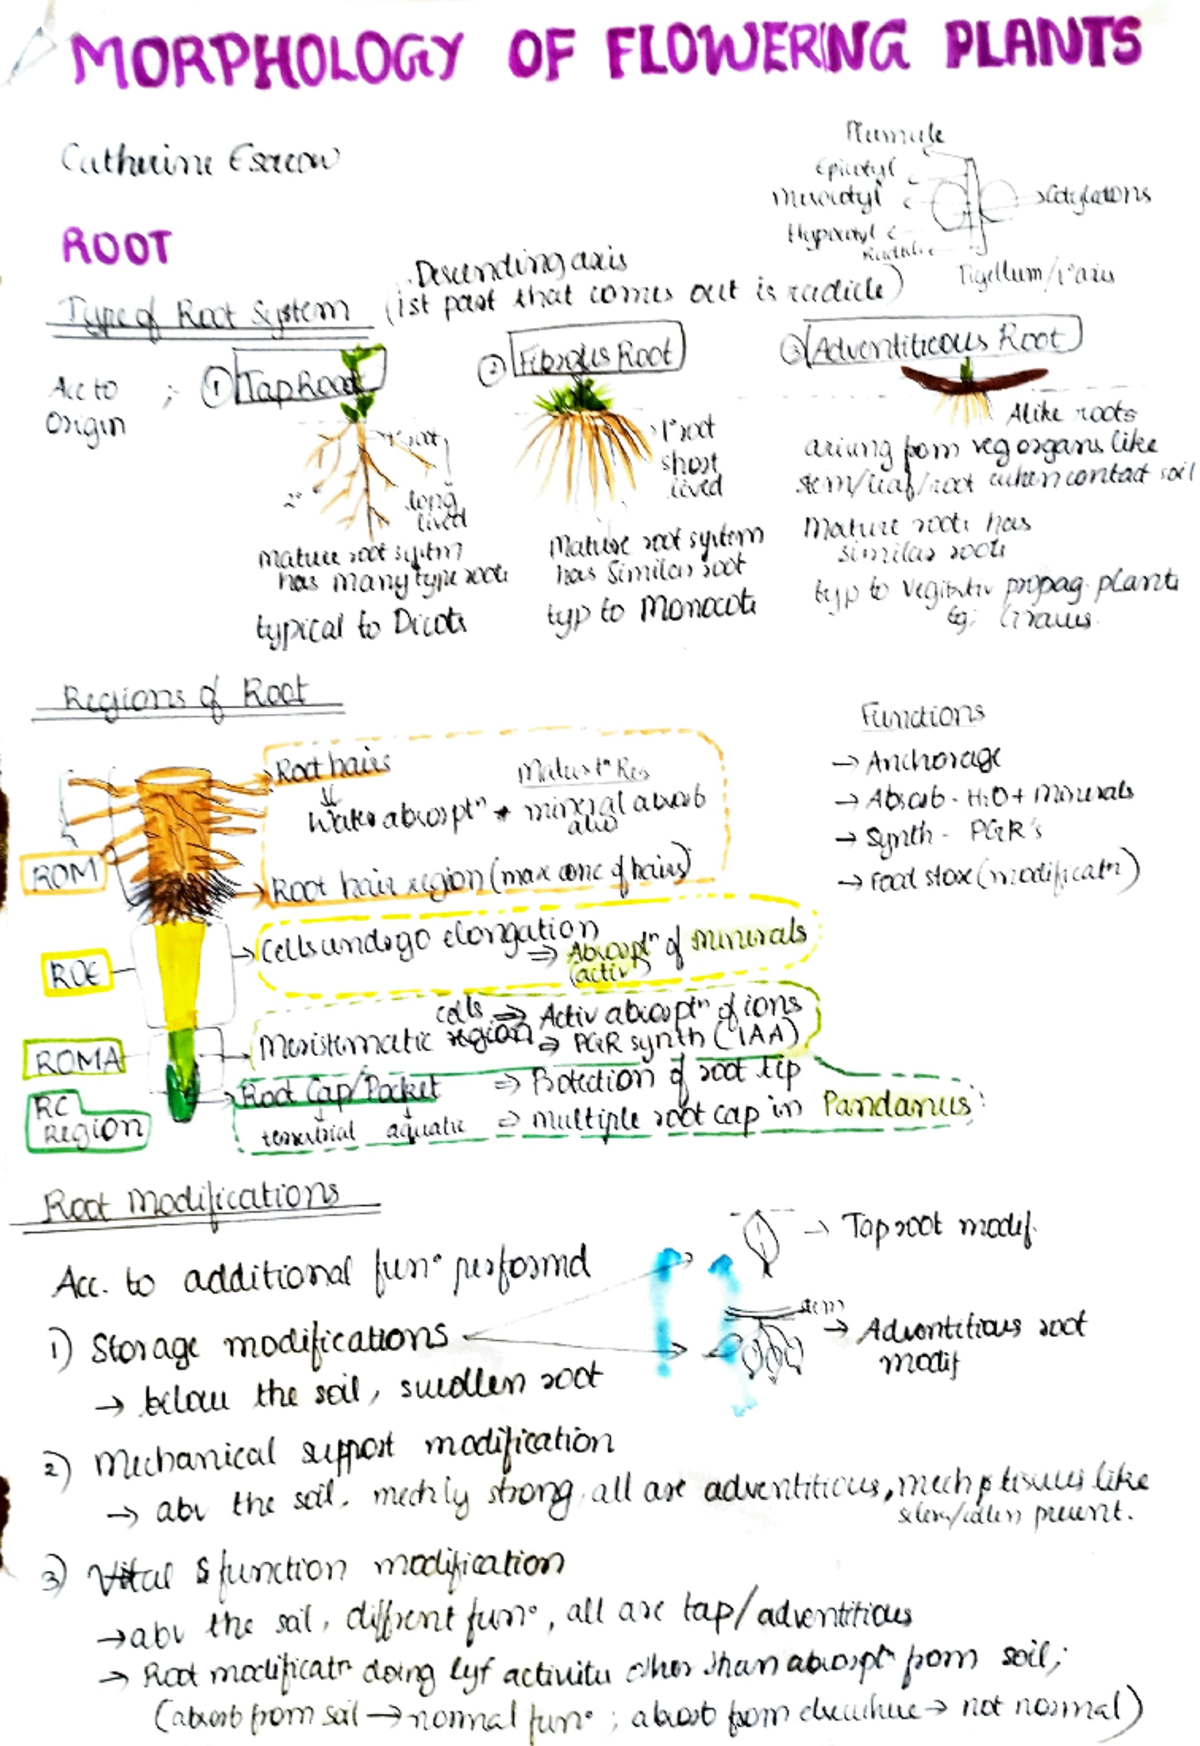 MORPHOLOGY OF FLOWERING PLANTS
Catherine Escrow
Plumule
Epicotyl
Mesocotyl
Hypocotyl
Radicle
Cotyledons
Tigellum/1° axis
ROOT
Descending axis
(1st part that comes out is radicle)
Type of Root System
Acc to Origin ;
① Tap Root
1° root
2°
long lived
Mature root system
has many type roots
typical to Dicots
② Fibrous Root
1° root
short
lived
Mature root system
has Similar root
typ to Monocots
③ Adventiticous Root
Alike roots
arising from veg organs like
stem/leaf/root when contact soil
Mature roots has
similar roots
typ to vegitativ propag. plants
Eg: Grasses.
Regions of Root
ROM
Root hairs
Maturtⁿ Res
Water absorptⁿ + mineral absorb
also
Root hair region (max conc of hairs)
ROE
Cells undergo elongation
⇒ Absorptⁿ of minerals
(activ)
ROMA
cells ⇒ Activ absorptⁿ of ions
Meristematic region ⇒ PGR synth (IAA)
RC Region
Root Cap/Pocket ⇒ Protection of root tip
terrestrial aquatic ⇒ multiple root cap in Pandanus
Functions
→ Anchorage
→ Absorb - H2O + Minerals
→ Synth - PGR's
→ Food store (modificatn)
Root Modifications
Acc. to additional funⁿ performd
1) Storage modifications
→ below the soil, swollen root
→ Taproot modif.
stem
→ Adventitious root
modif
2) Mechanical support modification
→ abv the soil, mechly strong, all are adventitious, mech tissues like
present.
3) Vital function modification
→ abv the soil, diffrent funⁿ, all are tap/adventitious
→ Root modificatn doing lyf activity other than absorptⁿ from soil;
(absorb from soil → normal funⁿ ; absorb from elsewhere → not normal)